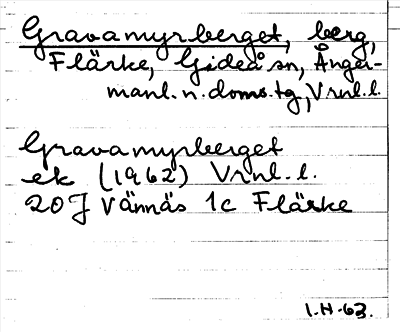 Gravamyrberget, berg,
Flärke, Gideå sn, Ånger-
manl. n. doms. tg, Vrnl. l.
Gravamyrberget
ek (1962) Vrnl. l.
20J Vännäs 1c Flärke
I.H-63.